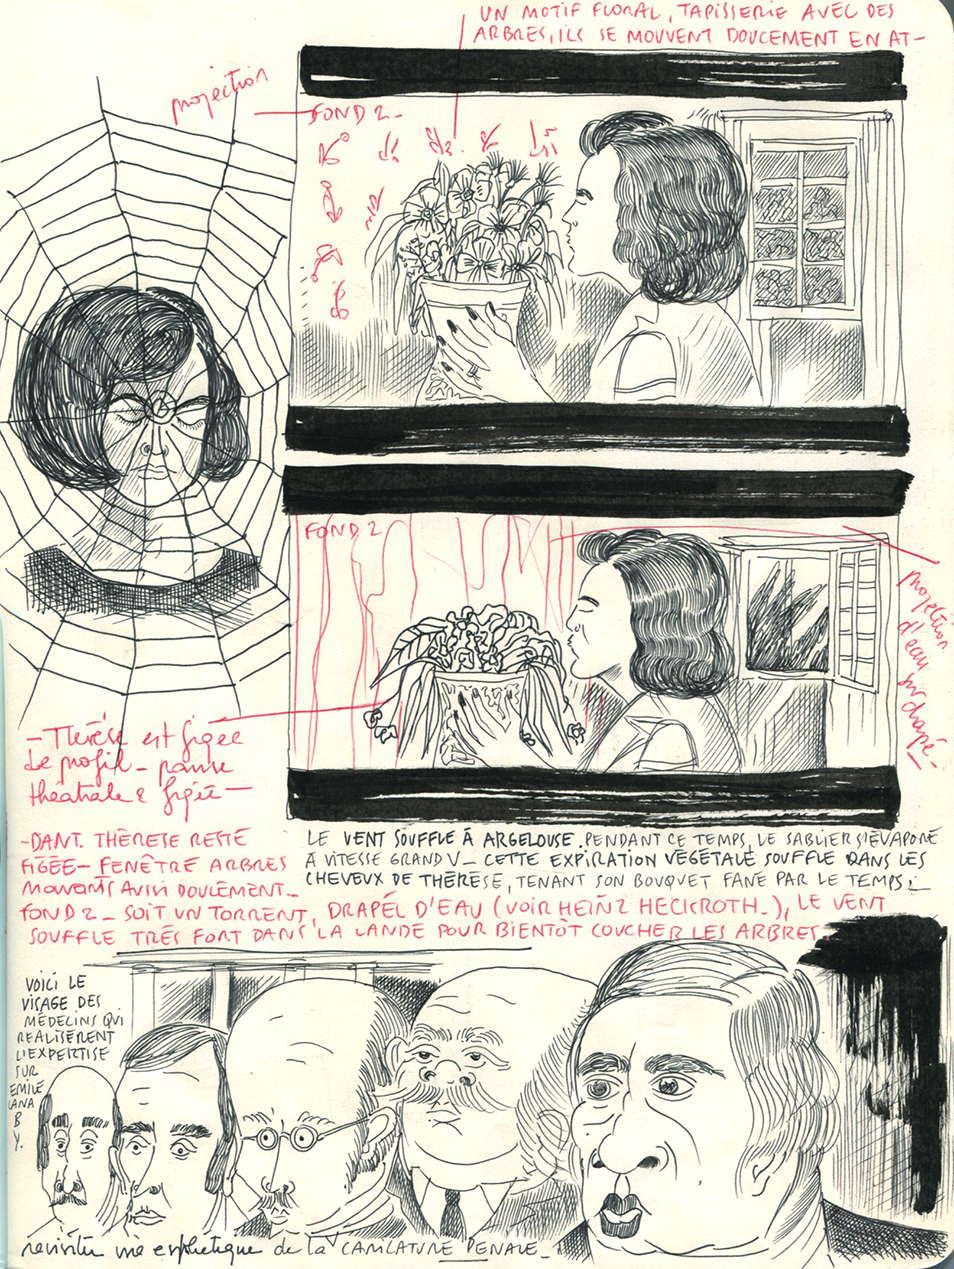 UN MOTIF FLORAL, TAPISSERIE AVEC DES
ARBRES, ILS SE MOUVENT DOUCEMENT EN AT-
projection
FOND 2-
FOND 2
projection
d'eau sur drapé-
- Thérèse est figée
de profil - pause
théâtrale & figée -
-DANT. THÉRÈSE RESTE
FIGÉE- FENÊTRE ARBRES
MOUVANTS AUSSI DOUCEMENT-
FOND 2 - SOIT UN TORRENT, DRAPÉ D'EAU (VOIR HEINZ HECKROTH-), LE VENT
SOUFFLE TRÈS FORT DANS LA LANDE POUR BIENTÔT COUCHER LES ARBRES-
LE VENT SOUFFLE À ARGELOUSE. PENDANT CE TEMPS, LE SABLIER S'ÉVAPORE
À VITESSE GRAND V- CETTE EXPIRATION VÉGÉTALE SOUFFLE DANS LES
CHEVEUX DE THÉRÈSE, TENANT SON BOUQUET FANÉ PAR LE TEMPS;-
VOICI LE
VISAGE DES
MÉDECINS QUI
REALISÈRENT
L'EXPERTISE
SUR
EMILE
CANA
B
Y.
revisiter une esthétique de la CARICATURE PENALE-